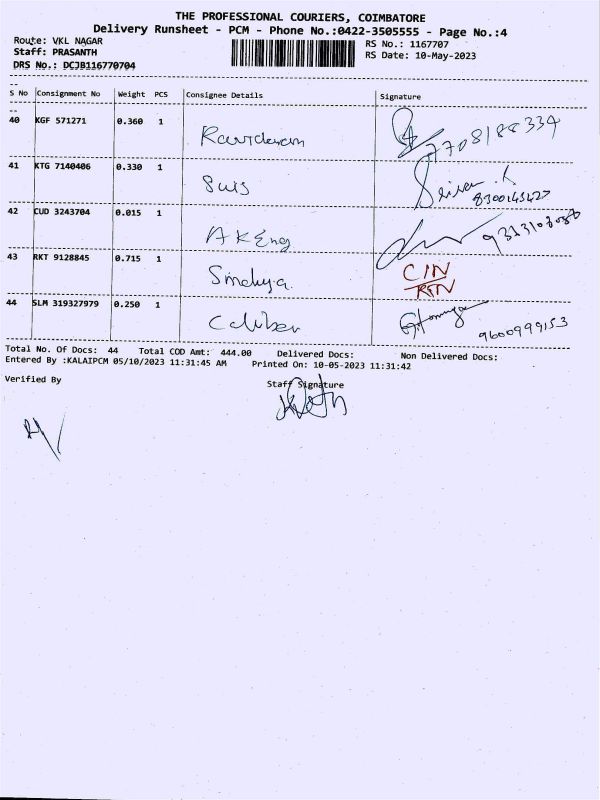 THE PROFESSIONAL COURIERS, COIMBATORE
Delivery Runsheet - PCM - Phone No.:0422-3505555 - Page No.:4
Route: VKL NAGAR
Staff: PRASANTH
DRS No.: DCJB116770704
RS No.: 1167707
RS Date: 10-May-2023
S No Consignment No Weight PCS Consignee Details Signature
40 KGF 571271 0.360 1
7708188334
41 KTG 7140406 0.330 1 Suis
8300145427
42 CUD 3243704 0.015 1 AK Eng
43 RKT 9128845 0.715 1
CIN
RTN
44 SLM 319327979 0.250 1 Caliber
9600999153
Total No. Of Docs: 44 Total COD Amt: 444.00 Delivered Docs: Non Delivered Docs:
Entered By :KALAIPCM 05/10/2023 11:31:45 AM Printed On: 10-05-2023 11:31:42
Verified By Staff Signature